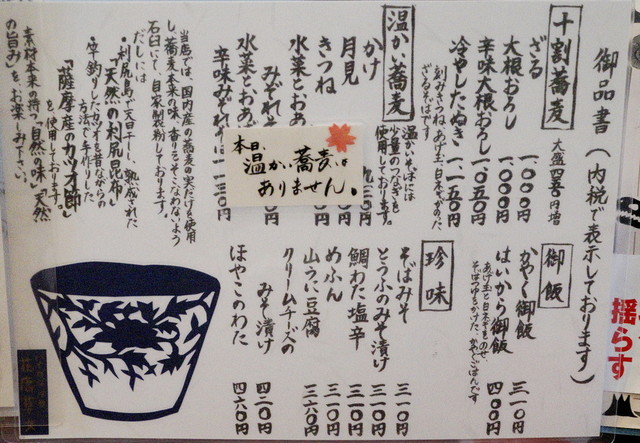 御品書(内税で表示しております)
十割蕎麦 大盛四五〇円増
ざる 一、〇〇〇円
大根おろし 一、〇〇〇円
辛味大根おろし 一、〇五〇円
冷やしたぬき 一、一五〇円
刻みきつね、あげ玉、白ネギがのった、
ざるそばです
温かい蕎麦
温かいそばには
少量のつなぎを
使用しております。
かけ
月見
きつね
水菜とおあ
みぞれそ
水菜とおあ
辛味みぞれ
本日、
温かい蕎麦は
ありません。
当店では、国内産の蕎麦の実だけを使用
し、蕎麦本来の味、香りをそこなわないよう
石臼にて、自家製粉しております。
だしには
・利尻島で天日干し、熟成された
『天然の利尻昆布』
・一本釣りしたカツオを昔ながらの
方法で、手作りした
『薩摩産のカツオ節』
を使用しております。
素材本来の持つ『自然の味』『天然
の旨み』を、お楽しみ下さい。
御飯
かやく御飯 三一〇円
はいから御飯 四〇〇円
あげ玉と白ネギをのせ、
そばつゆをかけた、
珍味
そばみそ 三一〇円
とうふのみそ漬け 三一〇円
鯛わた塩辛 三一〇円
めふん 三一〇円
山うに豆腐 三六〇円
クリームチーズの
みそ漬け 四二〇円
ほやこのわた 四六〇円
揺らす